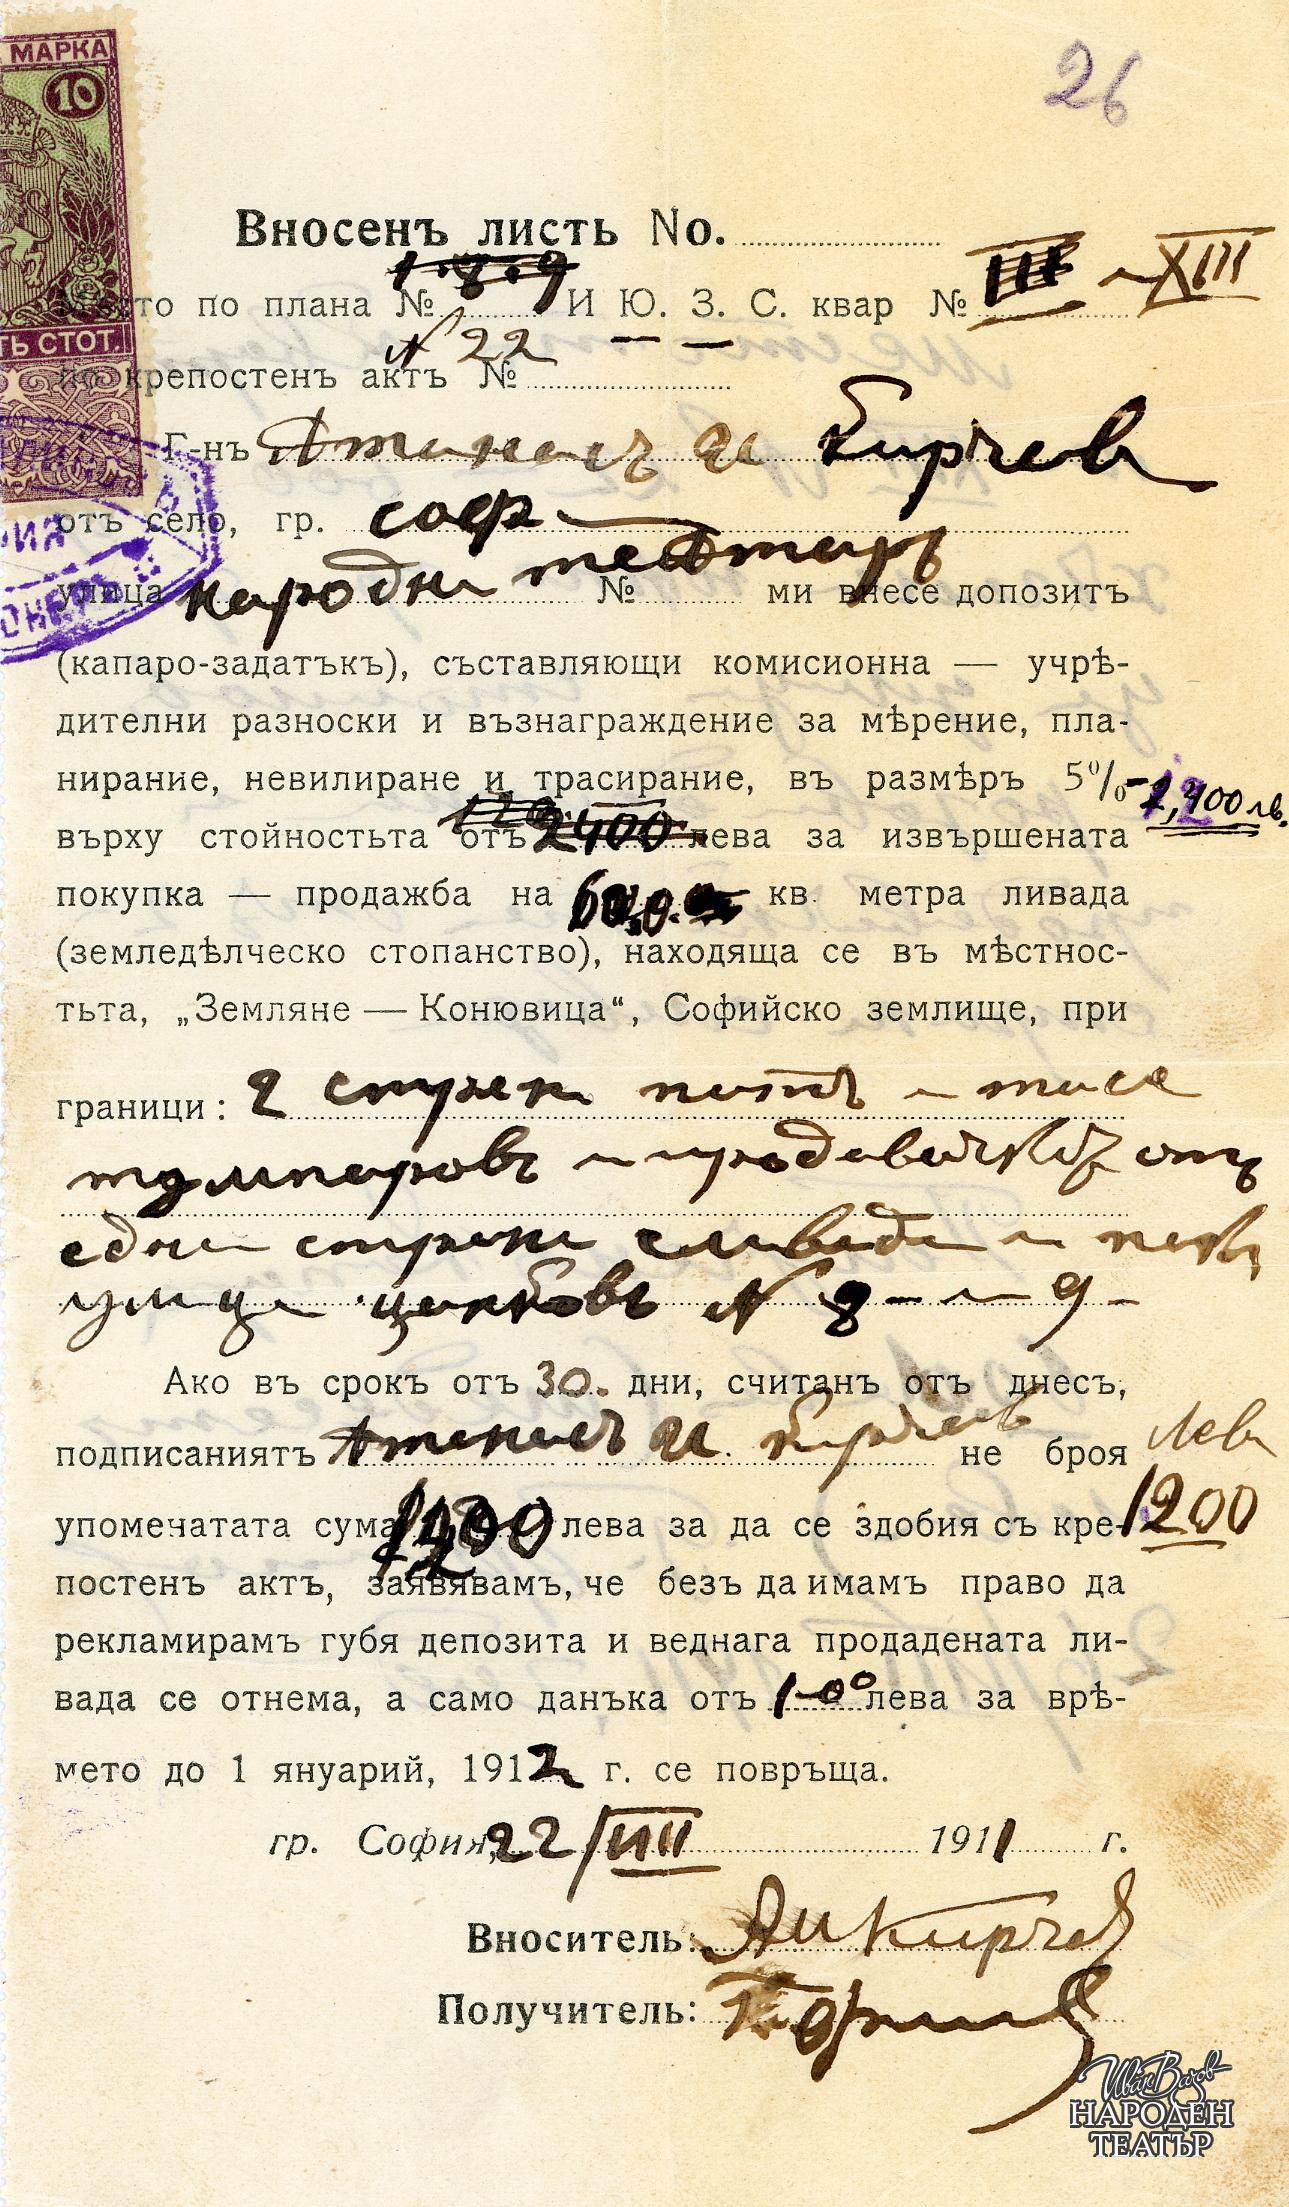 26
МАРКА
10
ТЬ СТОТ.
Вносенъ листъ No.
Место по плана № 9 И Ю. З. С. квар № III и XIII
N 22
по крепостенъ актъ №
Г-нъ Атанасъ И Кирчев
отъ село, гр. соф
улица народни театъръ № ми внесе допозитъ
(капаро-задатъкъ), съставляющи комисионна — учрѣ-
дителни разноски и възнаграждение за мѣрение, пла-
нирание, невилиране и трасирание, въ размѣръ 5%
върху стойностьта отъ 2400 лева за извършената
1,200 лв.
покупка — продажба на 600 кв. метра ливада
(земледѣлческо стопанство), находяща се въ мѣстнос-
тьта, „Земляне — Конювица“, Софийско землище, при
граници: 2 страни пать и
и отъ
една страна и
улица N 8 и 9
Ако въ срокъ отъ 30. дни, считанъ отъ днесъ,
подписаниятъ Атанасъ И. Кирчев не броя
лева
1200
упомечатата сума 1200 лева за да се здобия съ кре-
постенъ актъ, заявявамъ, че безъ да имамъ право да
рекламирамъ губя депозита и веднага продадената ли-
вада се отнема, а само данъка отъ лева за врѣ-
мето до 1 януарий, 1912 г. се повръща.
гр. София, 22/VIII 1911 г.
Вноситель: Ат И Кирчев
Получитель:
Иван Вазов
НАРОДЕН
ТЕАТЪР